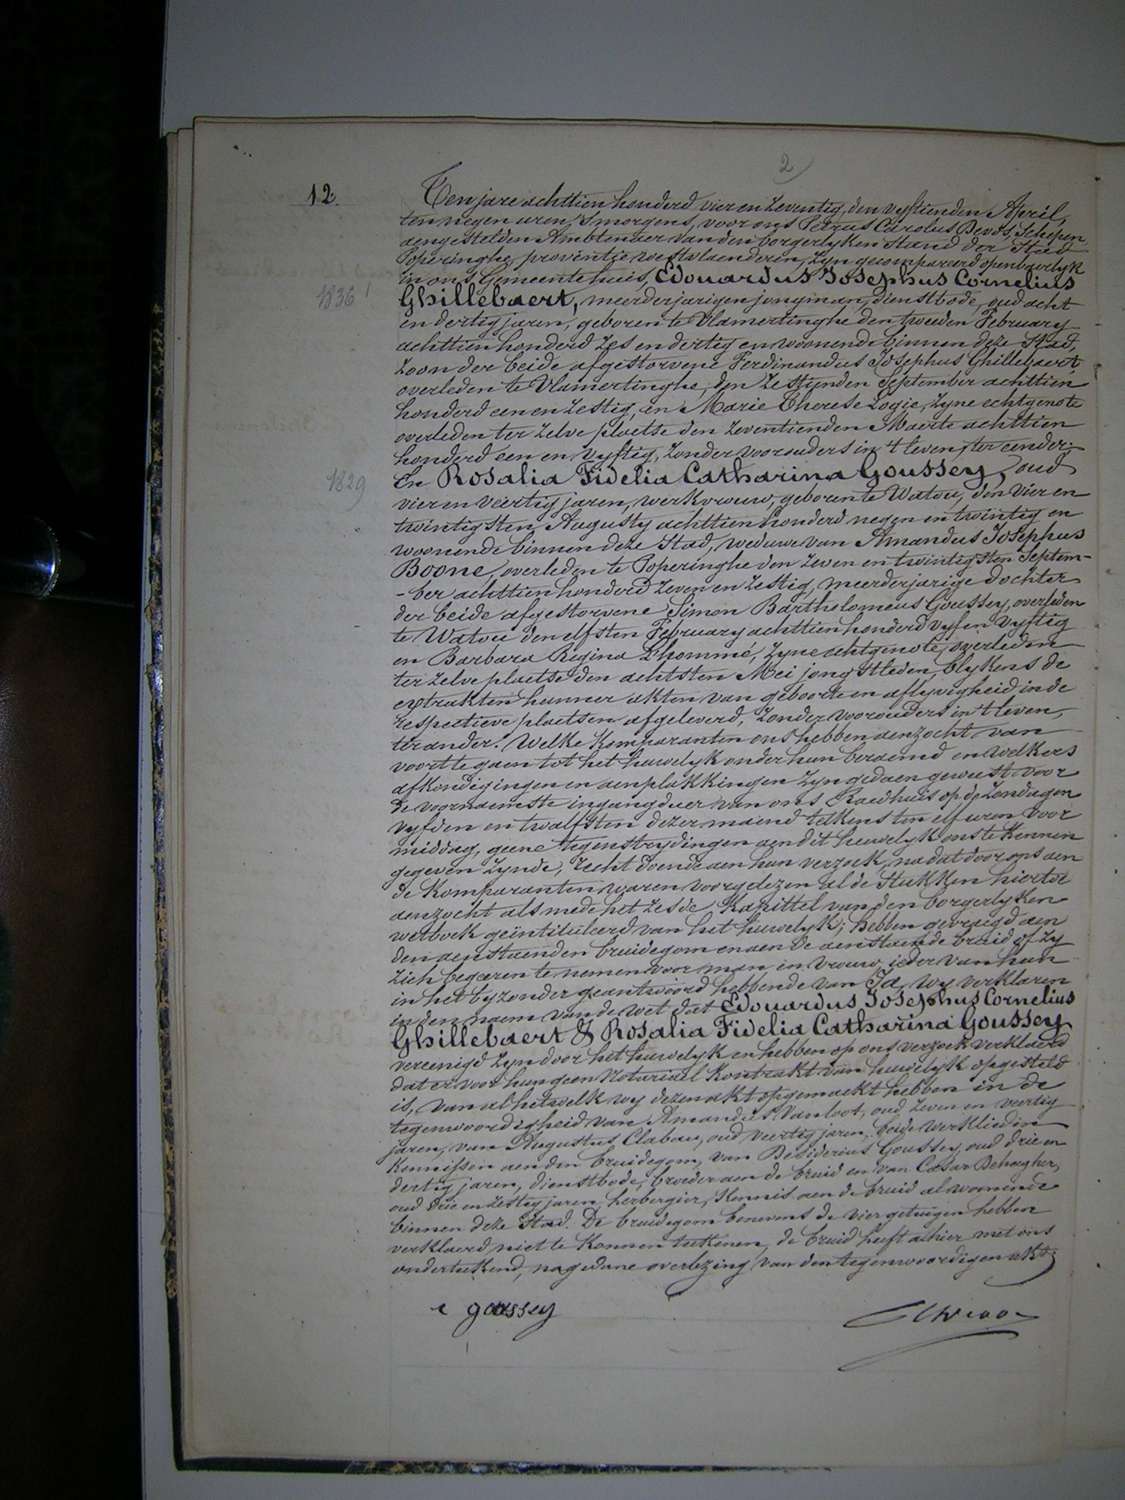 2
12.
Ten jare achttien honderd vier en zeventig, den vyftienden April,
ten negen uren 's morgens, voor ons Petrus Carolus Schepen
aengestelden Ambtenaer van den borgerlyken Stand der Stad
Poperinghe, provintie westvlaenderen, zyn gecompareerd openbaerlyk
in ons Gemeentehuis, Edouardus Josephus Cornelius
1836
Ghillebaert, meerderjarigen jongman, dienstbode, oud acht
en dertig jaren, geboren te Vlamertinghe den tweeden February
achttien honderd zes en dertig en woonende binnen deze Stad,
zoon der beide afgestorvene Ferdinandus Josephus Ghillebaert
overleden te Vlamertinghe, den zestienden September achttien
honderd een en zestig, en Marie Therese Logie, zyne echtgenote
overleden ter zelve plaetse den zeventienden Maerte achttien
honderd een en vyftig, zonder voorouders in 't leven, ter eender.
1829
En Rosalia Fidelia Catharina Goussey, oud
vier en veertig jaren, werkvrouw, geboren te Watou, den vier en
twintigsten Augusty achttien honderd negen en twintig en
woonende binnen deze Stad, weduwe van Amandus Josephus
Boone, overleden te Poperinghe den zeven en twintigsten Septem-
-ber achttien honderd zeven en zestig, meerderjarige dochter
der beide afgestorvene Simon Bartholomeus Goussey, overleden
te Watou den elfsten February achttien honderd vyf en vyftig
en Barbara Regina Dhomme, zyne echtgenote, overleden
ter zelve plaetse den achtsten Mei jongstleden, blykens de
extrakten hunner akten van geboorte en aflyvigheid in de
respectieve plaetsen afgeleverd, zonder voorouders in 't leven,
ter ander. Welke Komparanten ons hebben aenzocht van
voort te gaen tot het huwelyk onder hun beraemd en welkers
afkondigingen en aenplakkingen zyn gedaen geweest voor
de voornaemste ingangdeur van ons Raedhuis op de zondagen
vyfden en twalfsten dezer maend telkens ten elf uren voor
middag, geene tegenstrydingen aen dit huwelyk ons te kennen
gegeven zynde, recht doende aen hun verzoek, na dat door ons aen
de Komparanten waren voorgelezen al de stukken hiertoe
aenzocht als mede het zesde Kapittel van den borgerlyken
wetboek geïntituleerd van het huwelyk; hebben gevraegd aen
den aenstaenden bruidegom en aen de aenstaende bruid of zy
zich begeeren te nemen voor man en vrouw, ieder van hun
in het byzonder geantwoord hebbende van Ja, wy verklaren
in den naem van de wet dat Edouardus Josephus Cornelius
Ghillebaert & Rosalia Fidelia Catharina Goussey
vereenigd zyn door het huwelyk en hebben op ons verzoek verklaerd
dat er voor hun geen Notariael kontrakt van huwelyk opgesteld
is, van al hetwelk wy dezen akt opgemaekt hebben in de
tegenwoordigheid van Amandus Vanloot, oud zeven en veertig
jaren, van Augustus Clabau, oud veertig jaren, beide werklieden
kennissen aen den bruidegom, van Desiderius Goussey, oud drie en
dertig jaren, dienstbode, broeder aen de bruid en van Cæsar Behaegher,
oud drie en zestig jaren, herbergier, kennis aen de bruid al woonende
binnen deze Stad. De bruidegom benevens de vier getuigen hebben
verklaerd niet te konnen teekenen, de bruid heeft alhier met ons
onderteekend, na gedane overlezing van den tegenwoordigen akt
goussey